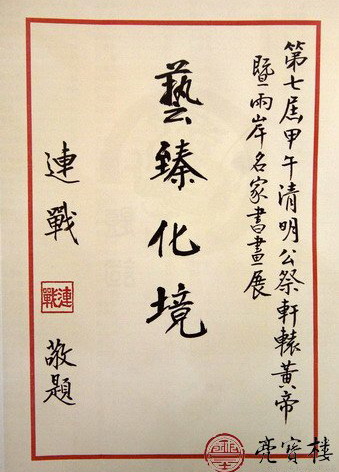 第七屆甲午清明公祭軒轅黃帝
暨兩岸名家書畫展
藝臻化境
連戰
連戰
敬題
亮寶樓